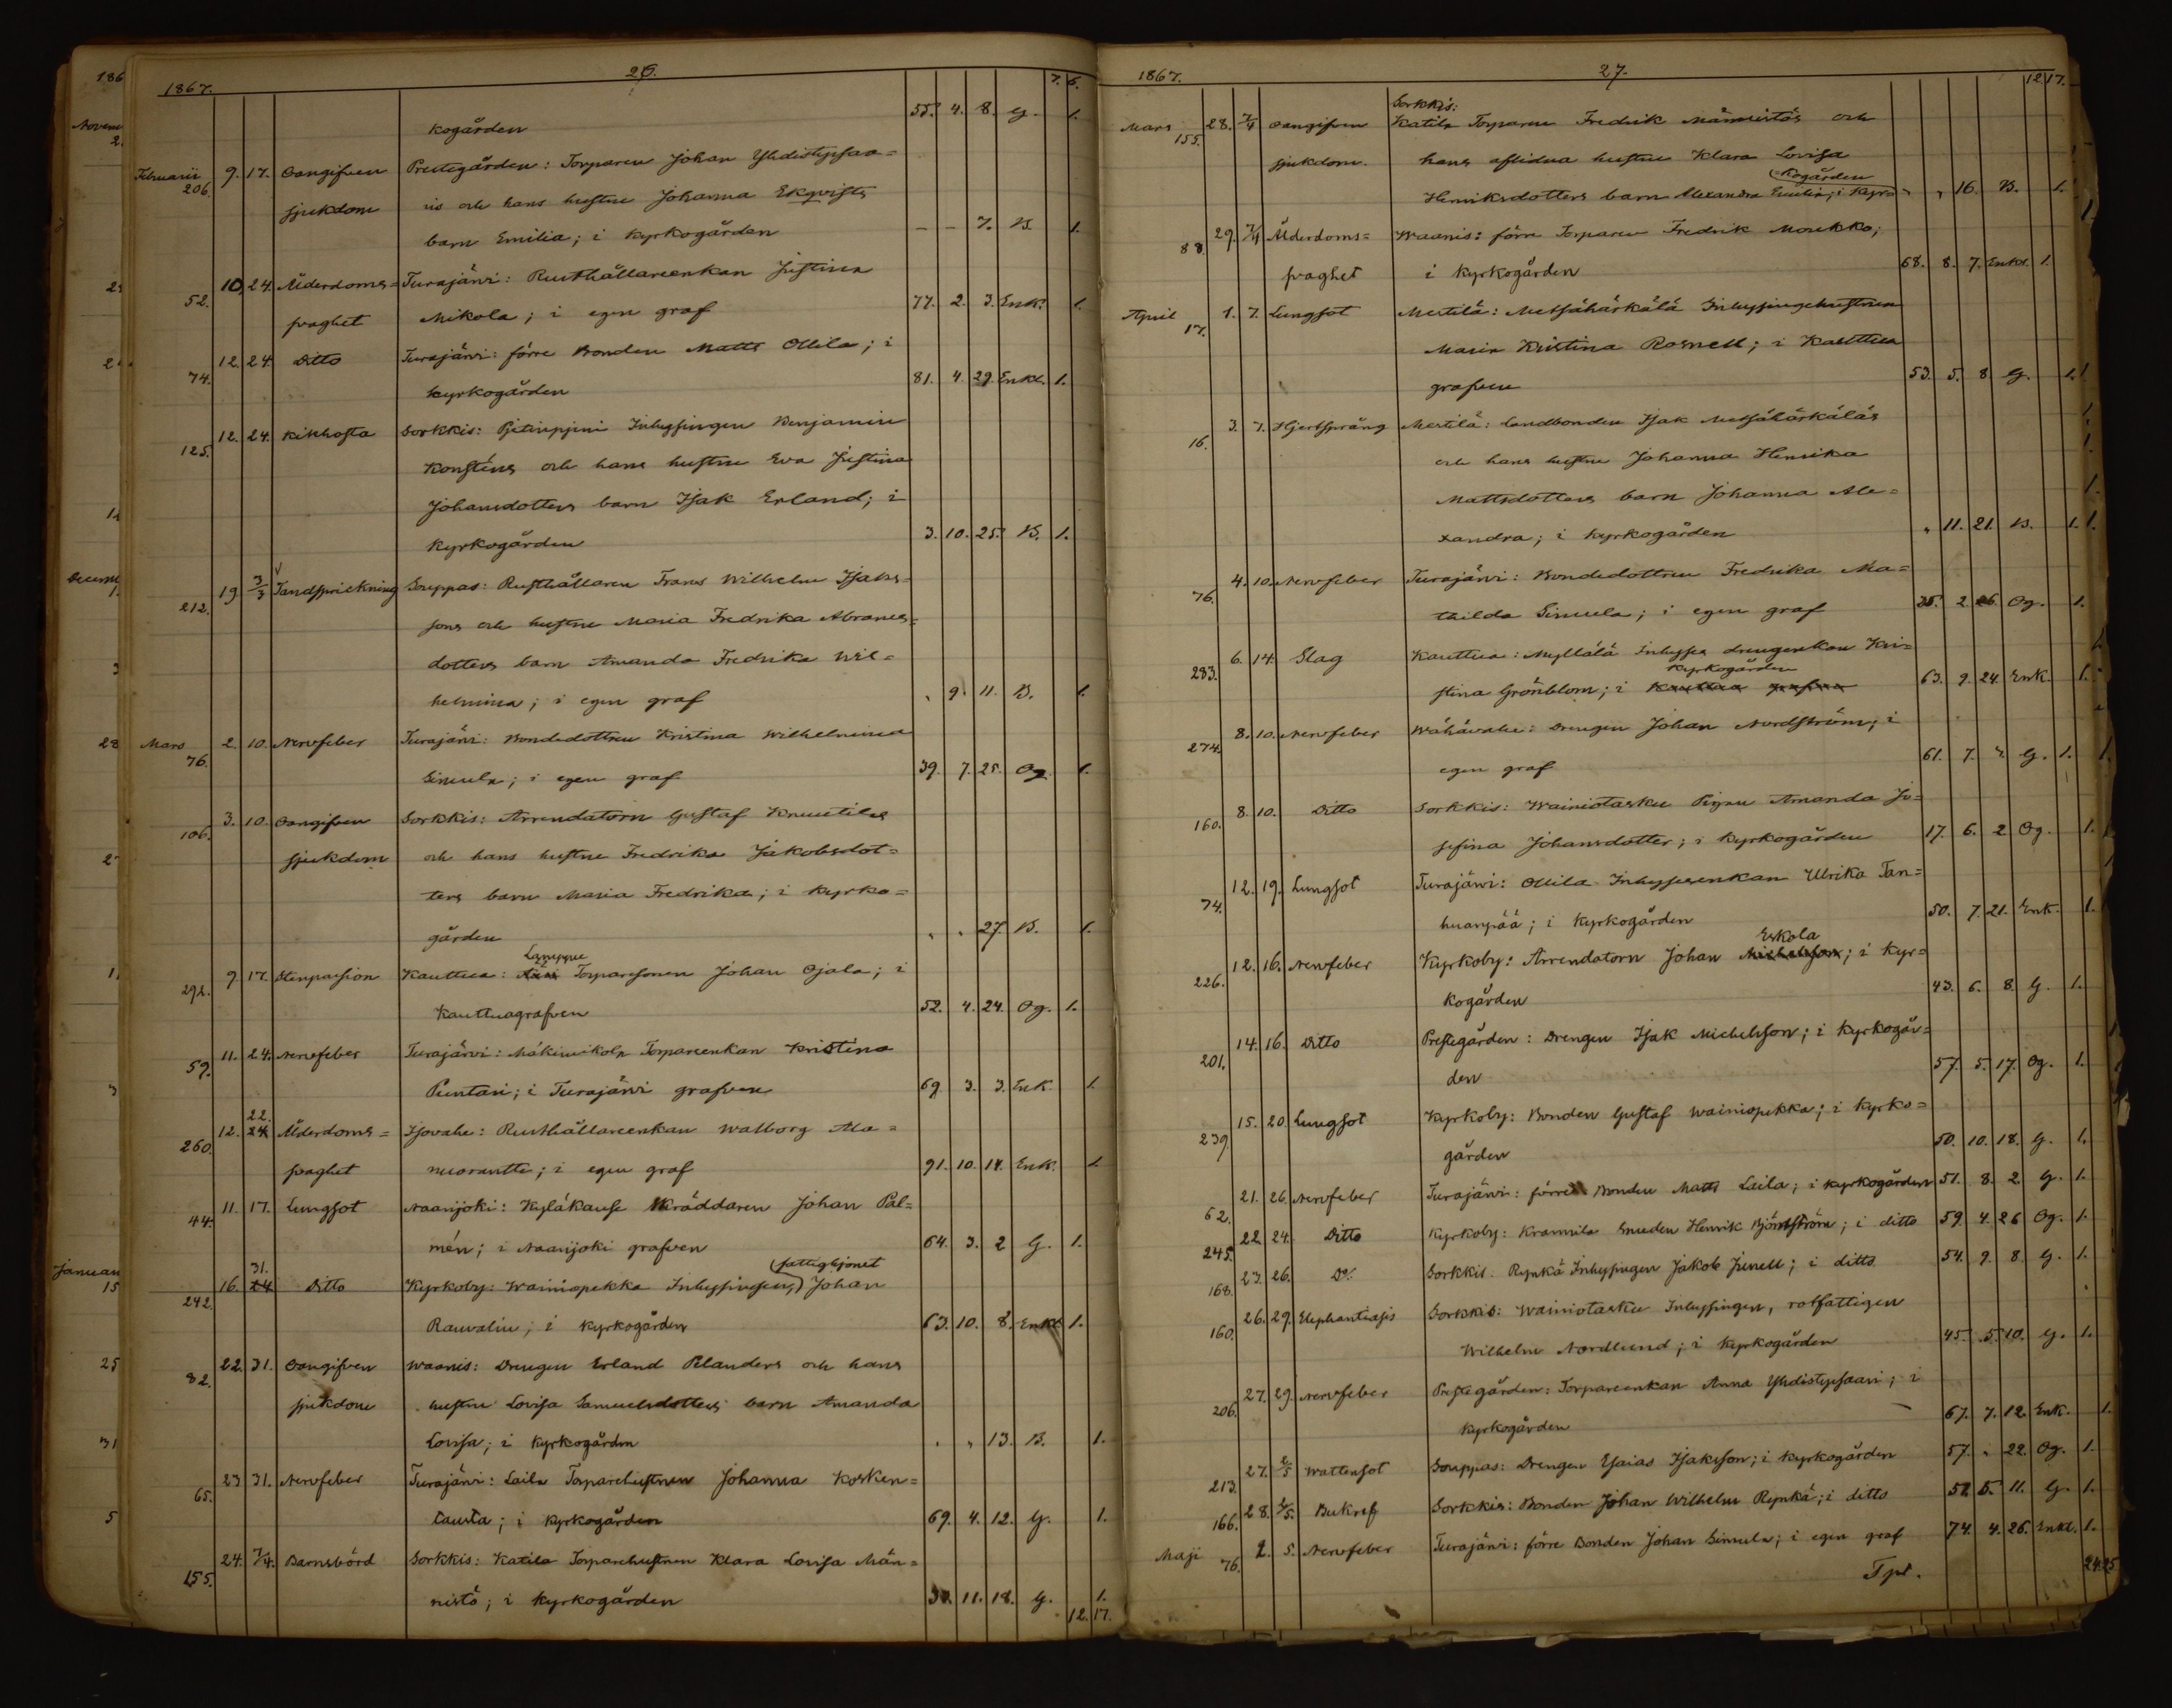 1867. 26. 7. 6.
kogården 55. 4. 8. G. 1.
Februarii 206. 9. 17. Oangifven Prestegården: Torparen Johan Yhdistyssaa=
sjukdom ris och hans hustru Johanna Ekqvists
barn Emilia; i kyrkogården - - 7. B. 1.
52. 10. 24. Ålderdoms= Turajärvi: Rusthållareenkan Justina
svaghet Mikola; i egen graf 77. 2. 3. Enk. 1.
74. 12. 24. Ditto Turajärvi: förre Bonden Matts Ollila; i
kyrkogården 81. 4. 29. Enkl. 1.
125. 12. 24. Kikhosta Sorkkis: Inhysingen Benjamin
Konsténs och hans hustru Eva Justina
Johansdotters barn Isak Erland; i
kyrkogården 3. 10. 25. B. 1.
212. 19. 3/3 Tandsprickning Souppas: Rusthållaren Frans Wilhelm Isaks=
sons och hustru Maria Fredrika Abrams=
dotters barn Amanda Fredrika Wil=
helmina; i egen graf " 9. 11. B. 1.
Mars 76. 2. 10. Nervfeber Turajärvi: Bondedottren Kristina Wilhelmina
Simula; i egen graf 39. 7. 25. Og. 1.
106. 3. 10. Oangifven Sorkkis: Arrendatorn Gustaf Knuutilas
sjukdom och hans hustru Fredrika Jakobsdot=
ters barn Maria Fredrika; i kyrko=
gården " " 27. B. 1.
Lamppu
292. 9. 17. Stenpassion Kauttua: Torparesonen Johan Ojala; i
Kauttuagrafven 52. 4. 24. Og. 1.
59. 11. 24. Nervfeber Turajärvi: Mäkimikola Torpareenkan Kristina
Puntari; i Turajärvi grafven 69. 3. 3. Enk. 1.
22.
260. 12. 24. Ålderdoms= Isovahe: Rusthållareenkan Walborg Ala=
svaghet nuorantti; i egen graf 91. 10. 14. Enk. 1.
44. 11. 17. Lungsot Naarijoki: Kyläkause Skräddaren Johan Pal=
mén; i Naarijoki grafven 64. 3. 2 G. 1.
31. (fattighjonet
242. 16. 24 Ditto Kyrkoby: Wainiopekka Inhysingen,) Johan
Rauvalin; i kyrkogården 63. 10. 8. Enkl. 1.
82. 22. 31. Oangifven Waanis: Drengen Erland Relanders och hans
sjukdom hustru Lovisa Samuelsdotters barn Amanda
Lovisa; i kyrkogården " " 13. B. 1.
65. 23. 31. Nervfeber Turajärvi: Laila Torparehustrun Johanna Kosken=
lausta; i kyrkogården 69. 4. 12. G. 1.
155. 24. 7/4. Barnsbörd Sorkkis: Katila Torparehustrun Klara Lovisa Män=
nistö; i kyrkogården 30. 11. 18. G. 1.
12. 17.
1867. 27. 12 17.
Sorkkis:
Mars 155. 28. 7/4 Oangifven Katila Torparen Fredrik Männistös och
sjukdom. hans aflidna hustru Klara Lovisa
(=kogården
Henriksdotters barn Alexandra Emilia; i kyr= " " 16. B. 1.
88. 29. 7/4 Ålderdoms= Waanis: förre Torparen Fredrik Mourkko;
svaghet i kyrkogården 68. 8. 7. Enkl. 1.
April 17. 1. 7. Lungsot Mestilä: Metsähärkälä Inhysingehustrun
Maria Kristina Rosnell; i Kauttua
grafven 53. 5. 8 G. 1.
16. 3. 7. Hjertsprång Mestilä: Landbonden Isak Metsähärkäläs
och hans hustru Johanna Henrika
Mattsdotters barn Johanna Ale=
xandra; i kyrkogården " 11. 21. B. 1.
76. 4. 10. Nervfeber Turajärvi: Bondedottren Fredrika Ma=
thilda Simula; i egen graf 35. 2. 26. Og. 1.
283. 6. 14. Slag Kauttua: Myllälä Inhyses drengenkan Kri=
kyrkogården
stina Grönblom; i Kauttua grafven 63. 9. 24. Enk. 1.
274. 8. 10. Nervfeber Wähävahe: Drengen Johan Nordström; i
egen graf 61. 7. " G. 1.
160. 8. 10. Ditto Sorkkis: Wainiotasku Pigan Amanda Jo=
sefina Johansdotter; i kyrkogården 17. 6. 2 Og. 1.
74. 12. 19. Lungsot Turajärvi: Ollila Inhysesenkan Ulrika Tan=
huanpää; i kyrkogården 50. 7. 21. Enk. 1.
Eskola
226. 12. 16. Nervfeber Kyrkoby: Arrendatorn Johan Michelsson; i kyr=
kogården 43. 6. 8. G. 1.
201. 14. 16. Ditto Prestegården: Drengen Isak Michelsson; i kyrkogår=
den 57. 5. 17. Og. 1.
239. 15. 20. Lungsot Kyrkoby: Bonden Gustaf Wainiopekka; i kyrko=
gården 50. 10. 18. G. 1.
62. 21. 26. Nervfeber Turajärvi: förre Bonden Matts Laila; i kyrkogården 51. 8. 2 G. 1.
245. 22. 24. Ditto Kyrkoby: Krannila Smeden Henrik Björkström; i ditto 59. 4. 26 Og. 1.
168. 23. 26. Do. Sorkkis. Rynkä Inhysingen Jakob Junell; i ditto 54. 9. 8. G. 1.
160. 26. 29. Elephantiasis Sorkkis: Wainiotasku Inhysingen, rotfattigen
Wilhelm Nordlund; i kyrkogården 45. 5. 10. G. 1.
206. 27. 29. Nervfeber Prestegården: Torpareenkan Anna Yhdistyssaari; i
kyrkogården 67. 7. 12. Enk. 1.
213. 27. 2/5 Wattensot Souppas: Drengen Esaias Isaksson; i kyrkogården 57. " 22. Og. 1.
166. 28. 2/5. Bukref Sorkkis: Bonden Johan Wilhelm Rynkä; i ditto 51. 5. 11. G. 1.
Maji 76. 2. 5. Nervfeber Turajärvi: förre Bonden Johan Simula; i egen graf 74. 4. 26. Enkl. 1.
Tpt. 24 25